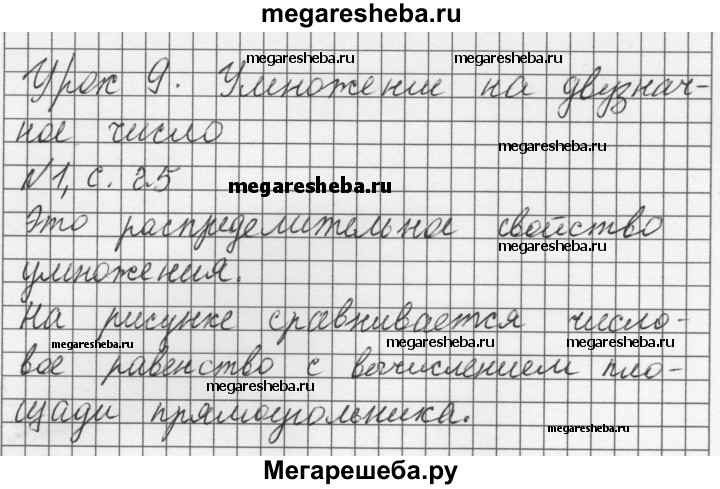 megaresheba.ru
Урок 9. Умножение на двузнач-
ное число
№1, с. 25
Это распределительное свойство
умножения.
На рисунке сравнивается число-
вое равенство с вычислением пло-
щади прямоугольника.
megaresheba.ru
megaresheba.ru
megaresheba.ru
megaresheba.ru
megaresheba.ru
megaresheba.ru
megaresheba.ru
megaresheba.ru
megaresheba.ru
Мегарешеба.ру